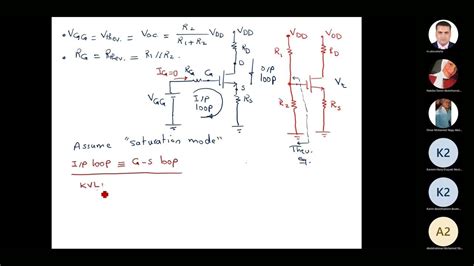 • VGG = VThev. = VOC = R2 / (R1 + R2) VDD
• RG = RThev. = R1 // R2
VDD
RD
D
O/P loop
IG=0
RG
G
S
VGG
I/P loop
RS
VDD
R1
RD
R2
RS
Thev. eq.
Assume "saturation mode"
I/P loop ≡ G-S loop
KVL:
K2
K2
A2